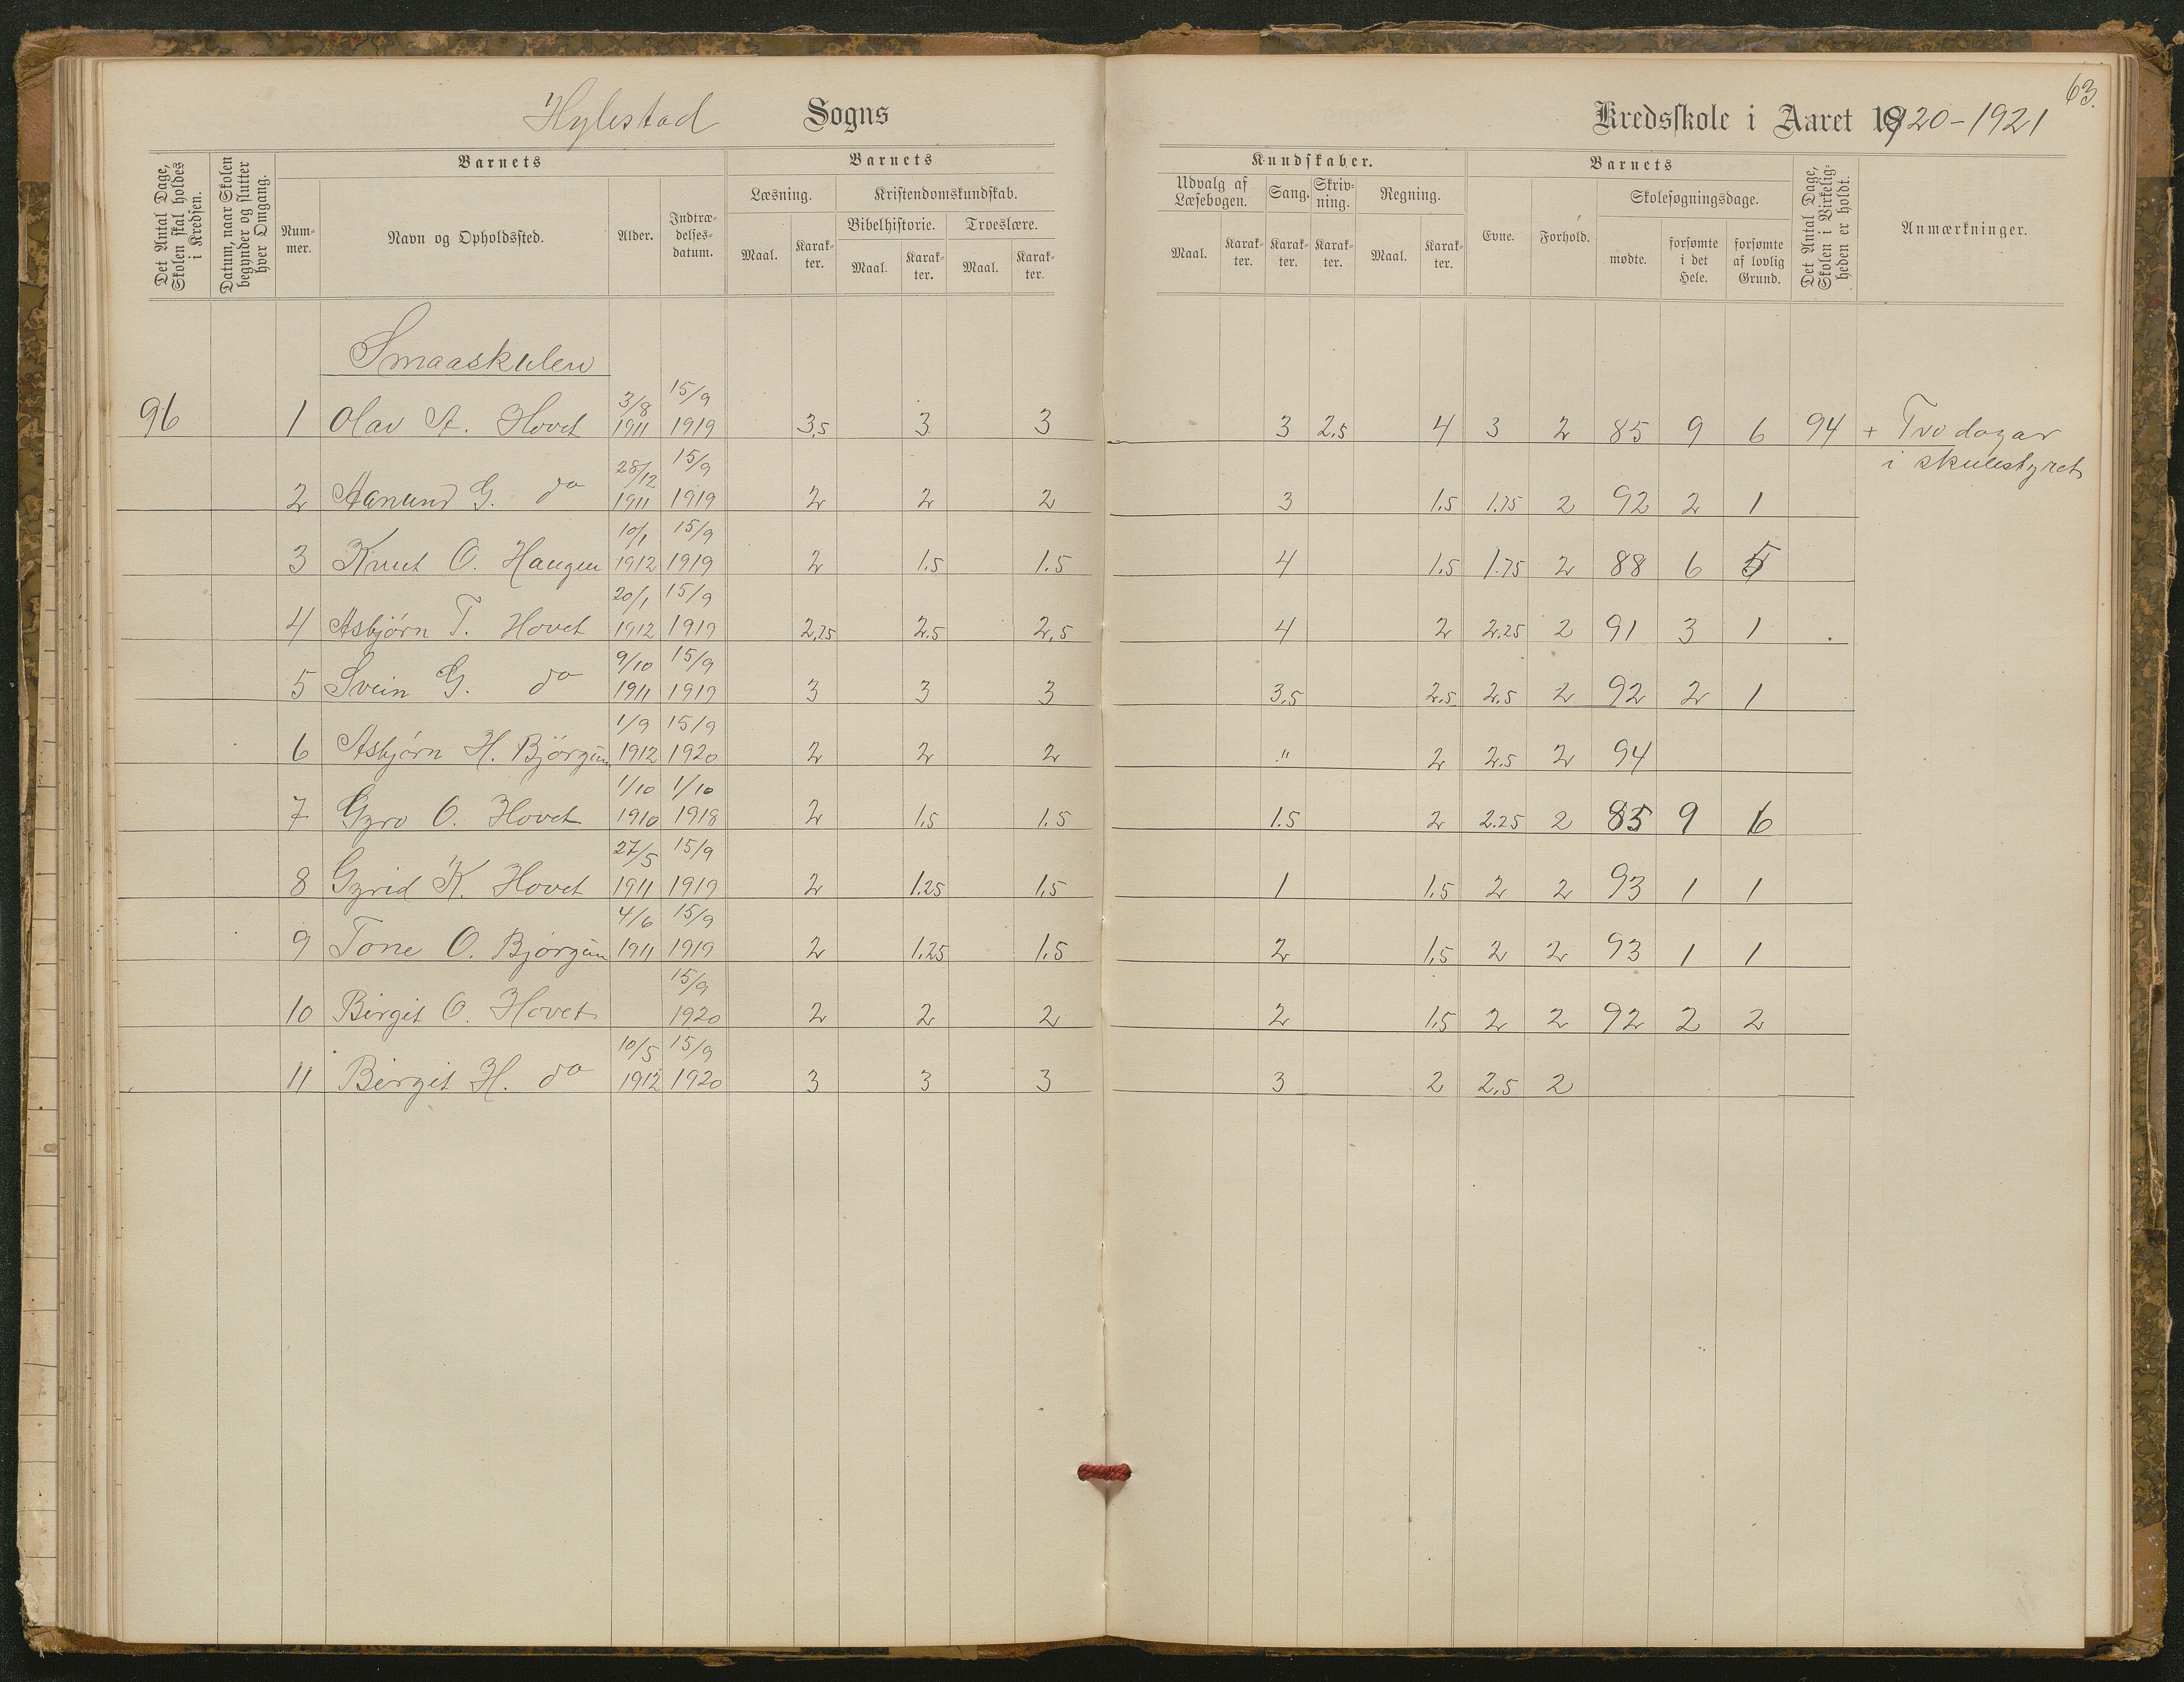 63.
Hylestad Sogns Kredsskole i Aaret 1920-1921
Det Antal Dage, Skolen skal holdes i Kredsen.
Datum, naar Skolen begynder og slutter hver Omgang.
Barnets
Nummer.
Navn og Opholdssted.
Alder.
Indtrædelsesdatum.
Barnets Kundskaber.
Læsning. Maal. Karakter.
Kristendomskundskab.
Bibelhistorie. Maal. Karakter.
Troeslære. Maal. Karakter.
Udvalg af Læsebogen. Maal. Karakter.
Sang. Karakter.
Skrivning. Karakter.
Regning. Maal. Karakter.
Barnets
Evne. Forhold.
Skolesøgningsdage.
mødte. forsømte i det Hele. forsømte af lovlig Grund.
Det Antal Dage, Skolen i Virkeligheden er holdt.
Anmærkninger.
Smaaskulen
96 1 Olav A. Hovet 3/8 1911 15/9 1919 3,5 3 3 3 2.5 4 3 2 85 9 6 94 + Tvo dagar
i skulestyret
2 Aanund G. do 28/12 1911 15/9 1919 2 2 2 3 1.5 1.75 2 92 2 1
3 Knut O. Haugen 10/1 1912 15/9 1919 2 1.5 1.5 4 1.5 1.75 2 88 6 5
4 Asbjörn T. Hovet 20/1 1912 15/9 1919 2,25 2.5 2,5 4 2 2.25 2 91 3 1
5 Svein G. do 9/10 1911 15/9 1919 3 3 3 3,5 2.5 2.5 2 92 2 1
6 Asbjörn H. Björgum 1/9 1912 15/9 1920 2 2 2 " 2 2.5 2 94
7 Gyro O. Hovet 1/10 1910 1/10 1918 2 1,5 1.5 1.5 2 2.25 2 85 9 6
8 Gyrid K. Hovet 27/5 1911 15/9 1919 2 1.25 1,5 1 1.5 2 2 93 1 1
9 Tone O. Björgum 4/6 1911 15/9 1919 2 1,25 1,5 2 1,5 2 2 93 1 1
10 Birgit O. Hovet 15/9 1920 2 2 2 2 1.5 2 2 92 2 2
11 Birgit H. do 10/5 1912 15/9 1920 3 3 3 3 2 2.5 2